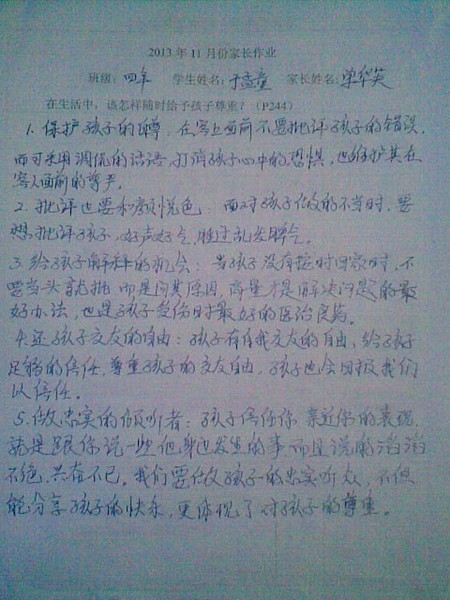 2013年11月份家长作业
班级：四年 学生姓名：于孟童 家长姓名：栾华英
在生活中，该怎样随时给予孩子尊重？（P244）
1. 保护孩子的自尊，在客人面前不要批评孩子的错误，
而可采用调侃的话语，打消孩子心中的恐惧，也维护其在
客人面前的尊严。
2. 批评也要和颜悦色：面对孩子做的不当时，要
想批评孩子，好声好气，胜过乱发脾气。
3. 给孩子解释的机会：当孩子没有按时回家时，不
要当头就批，而是问其原因，商量才是解决问题的最
好办法，也是孩子受伤时最好的医治良药。
4. 还孩子交友的自由：孩子有自我交友的自由，给孩子
足够的信任，尊重孩子的交友自由，孩子也会回报我们
以信任。
5. 做忠实的倾听者：孩子信任你，亲近你的表现，
就是跟你说一些他身边发生的事而且说的滔滔
不绝，兴奋不已。我们要做孩子的忠实听众，不但
能分享孩子的快乐，更体现了对孩子的尊重。